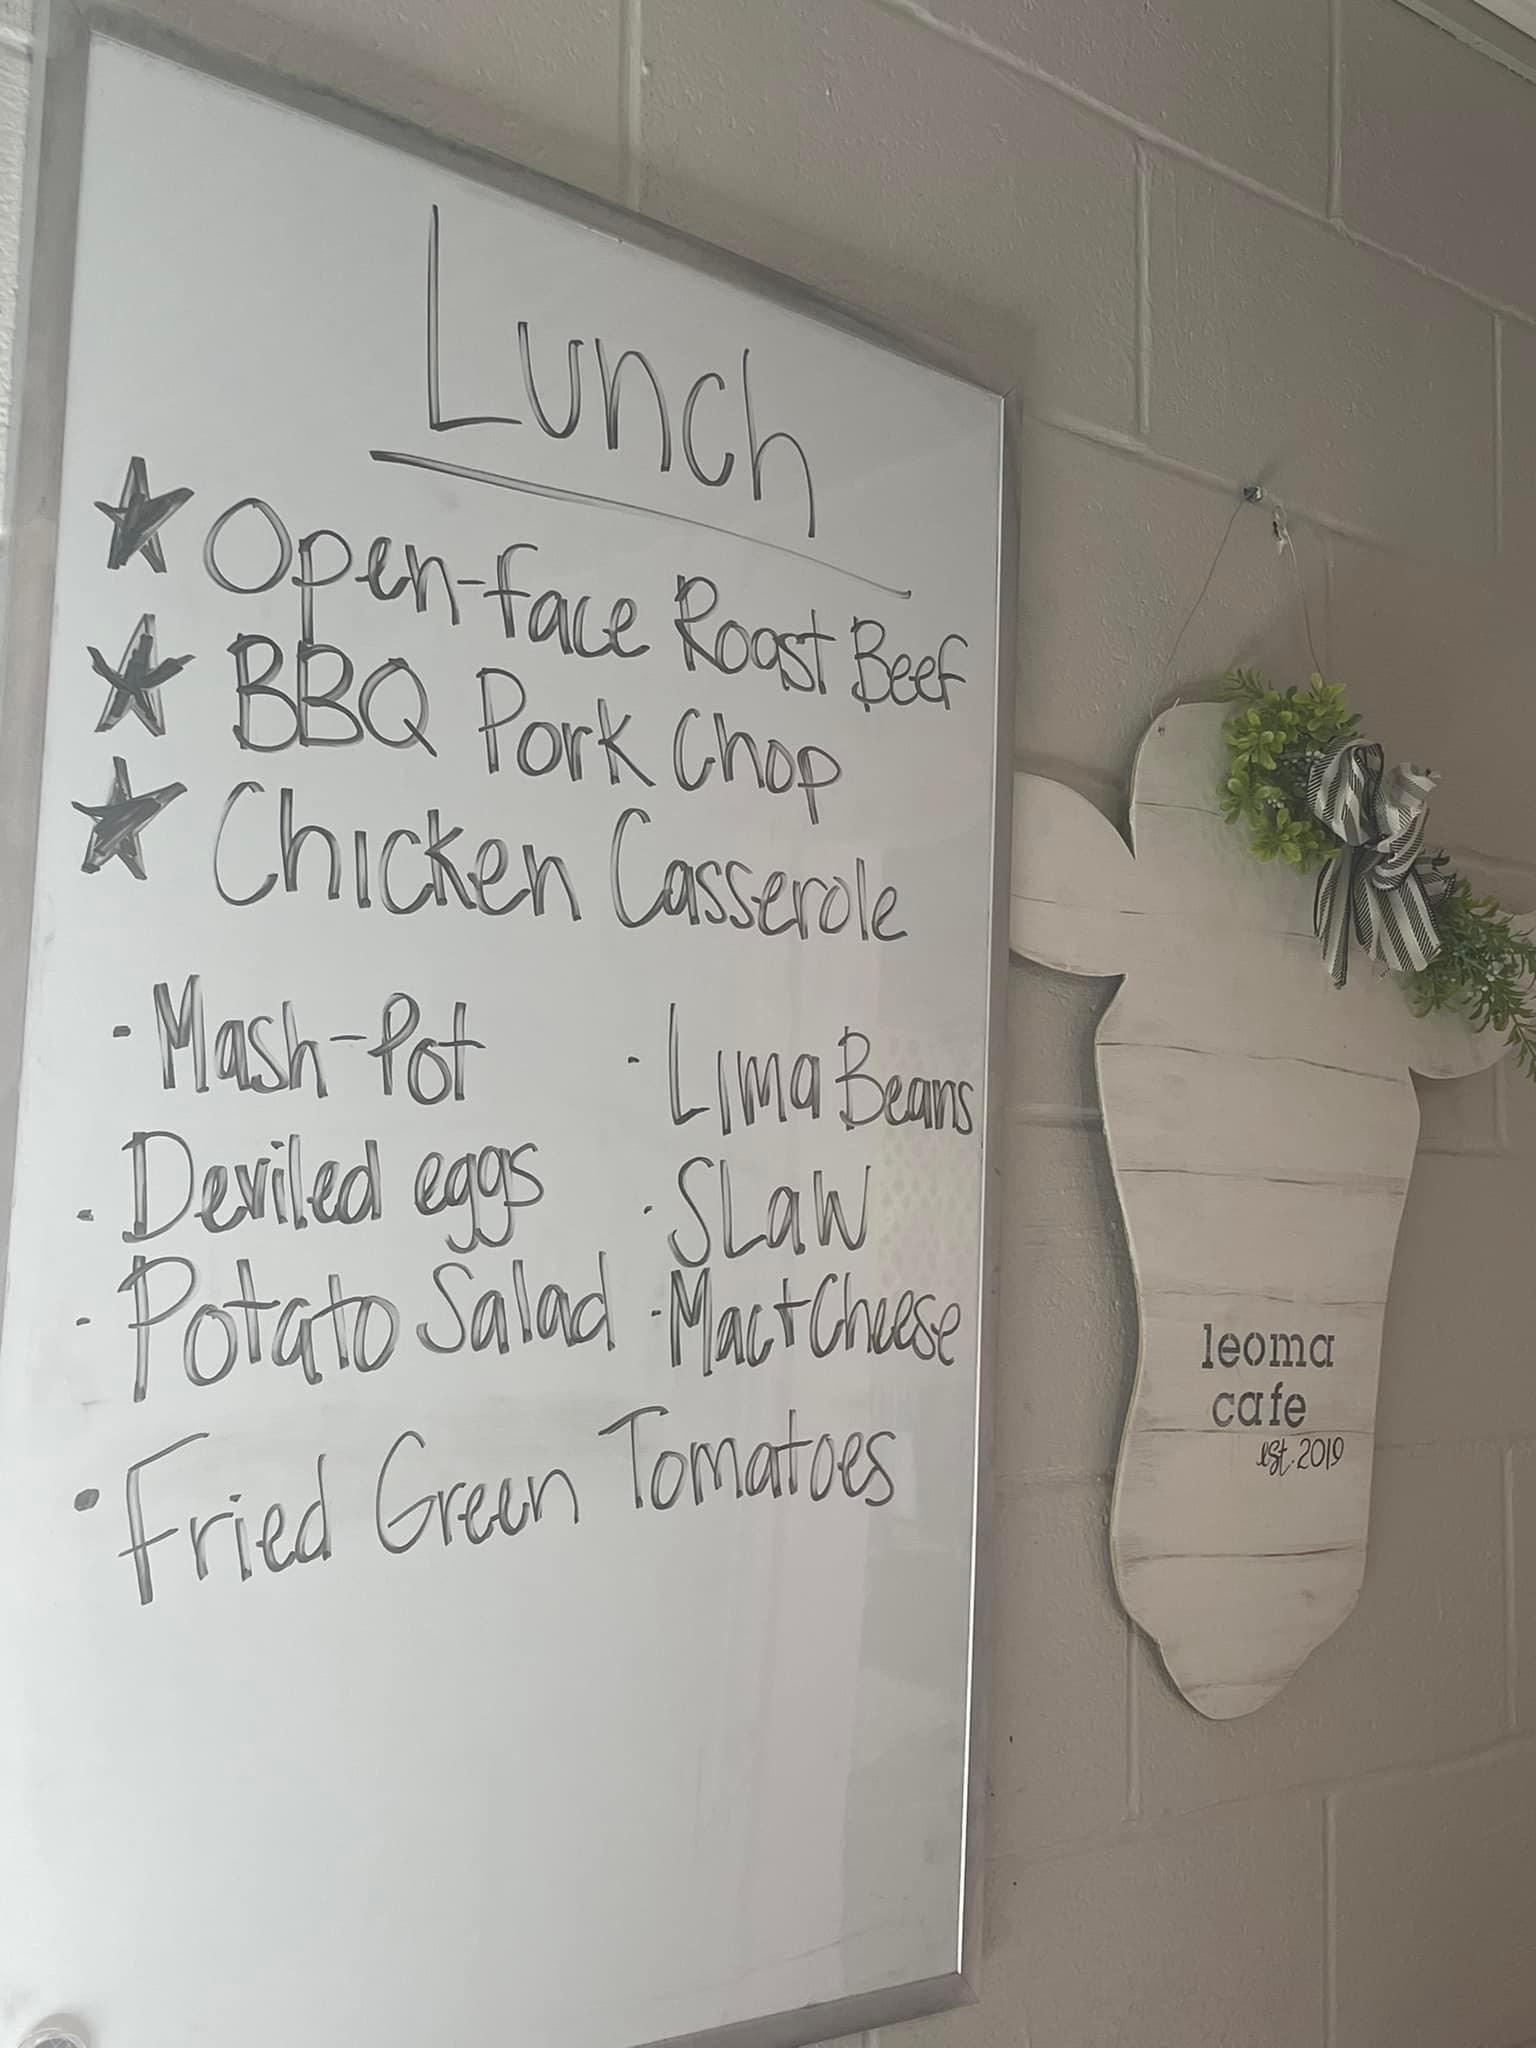 Lunch
★ Open-face Roast Beef
★ BBQ Pork Chop
★ Chicken Casserole
· Mash-Pot
· Deviled eggs
· Potato Salad
· Lima Beans
· SLaw
· Mac+Cheese
· Fried Green Tomatoes
leoma
cafe
est. 2019